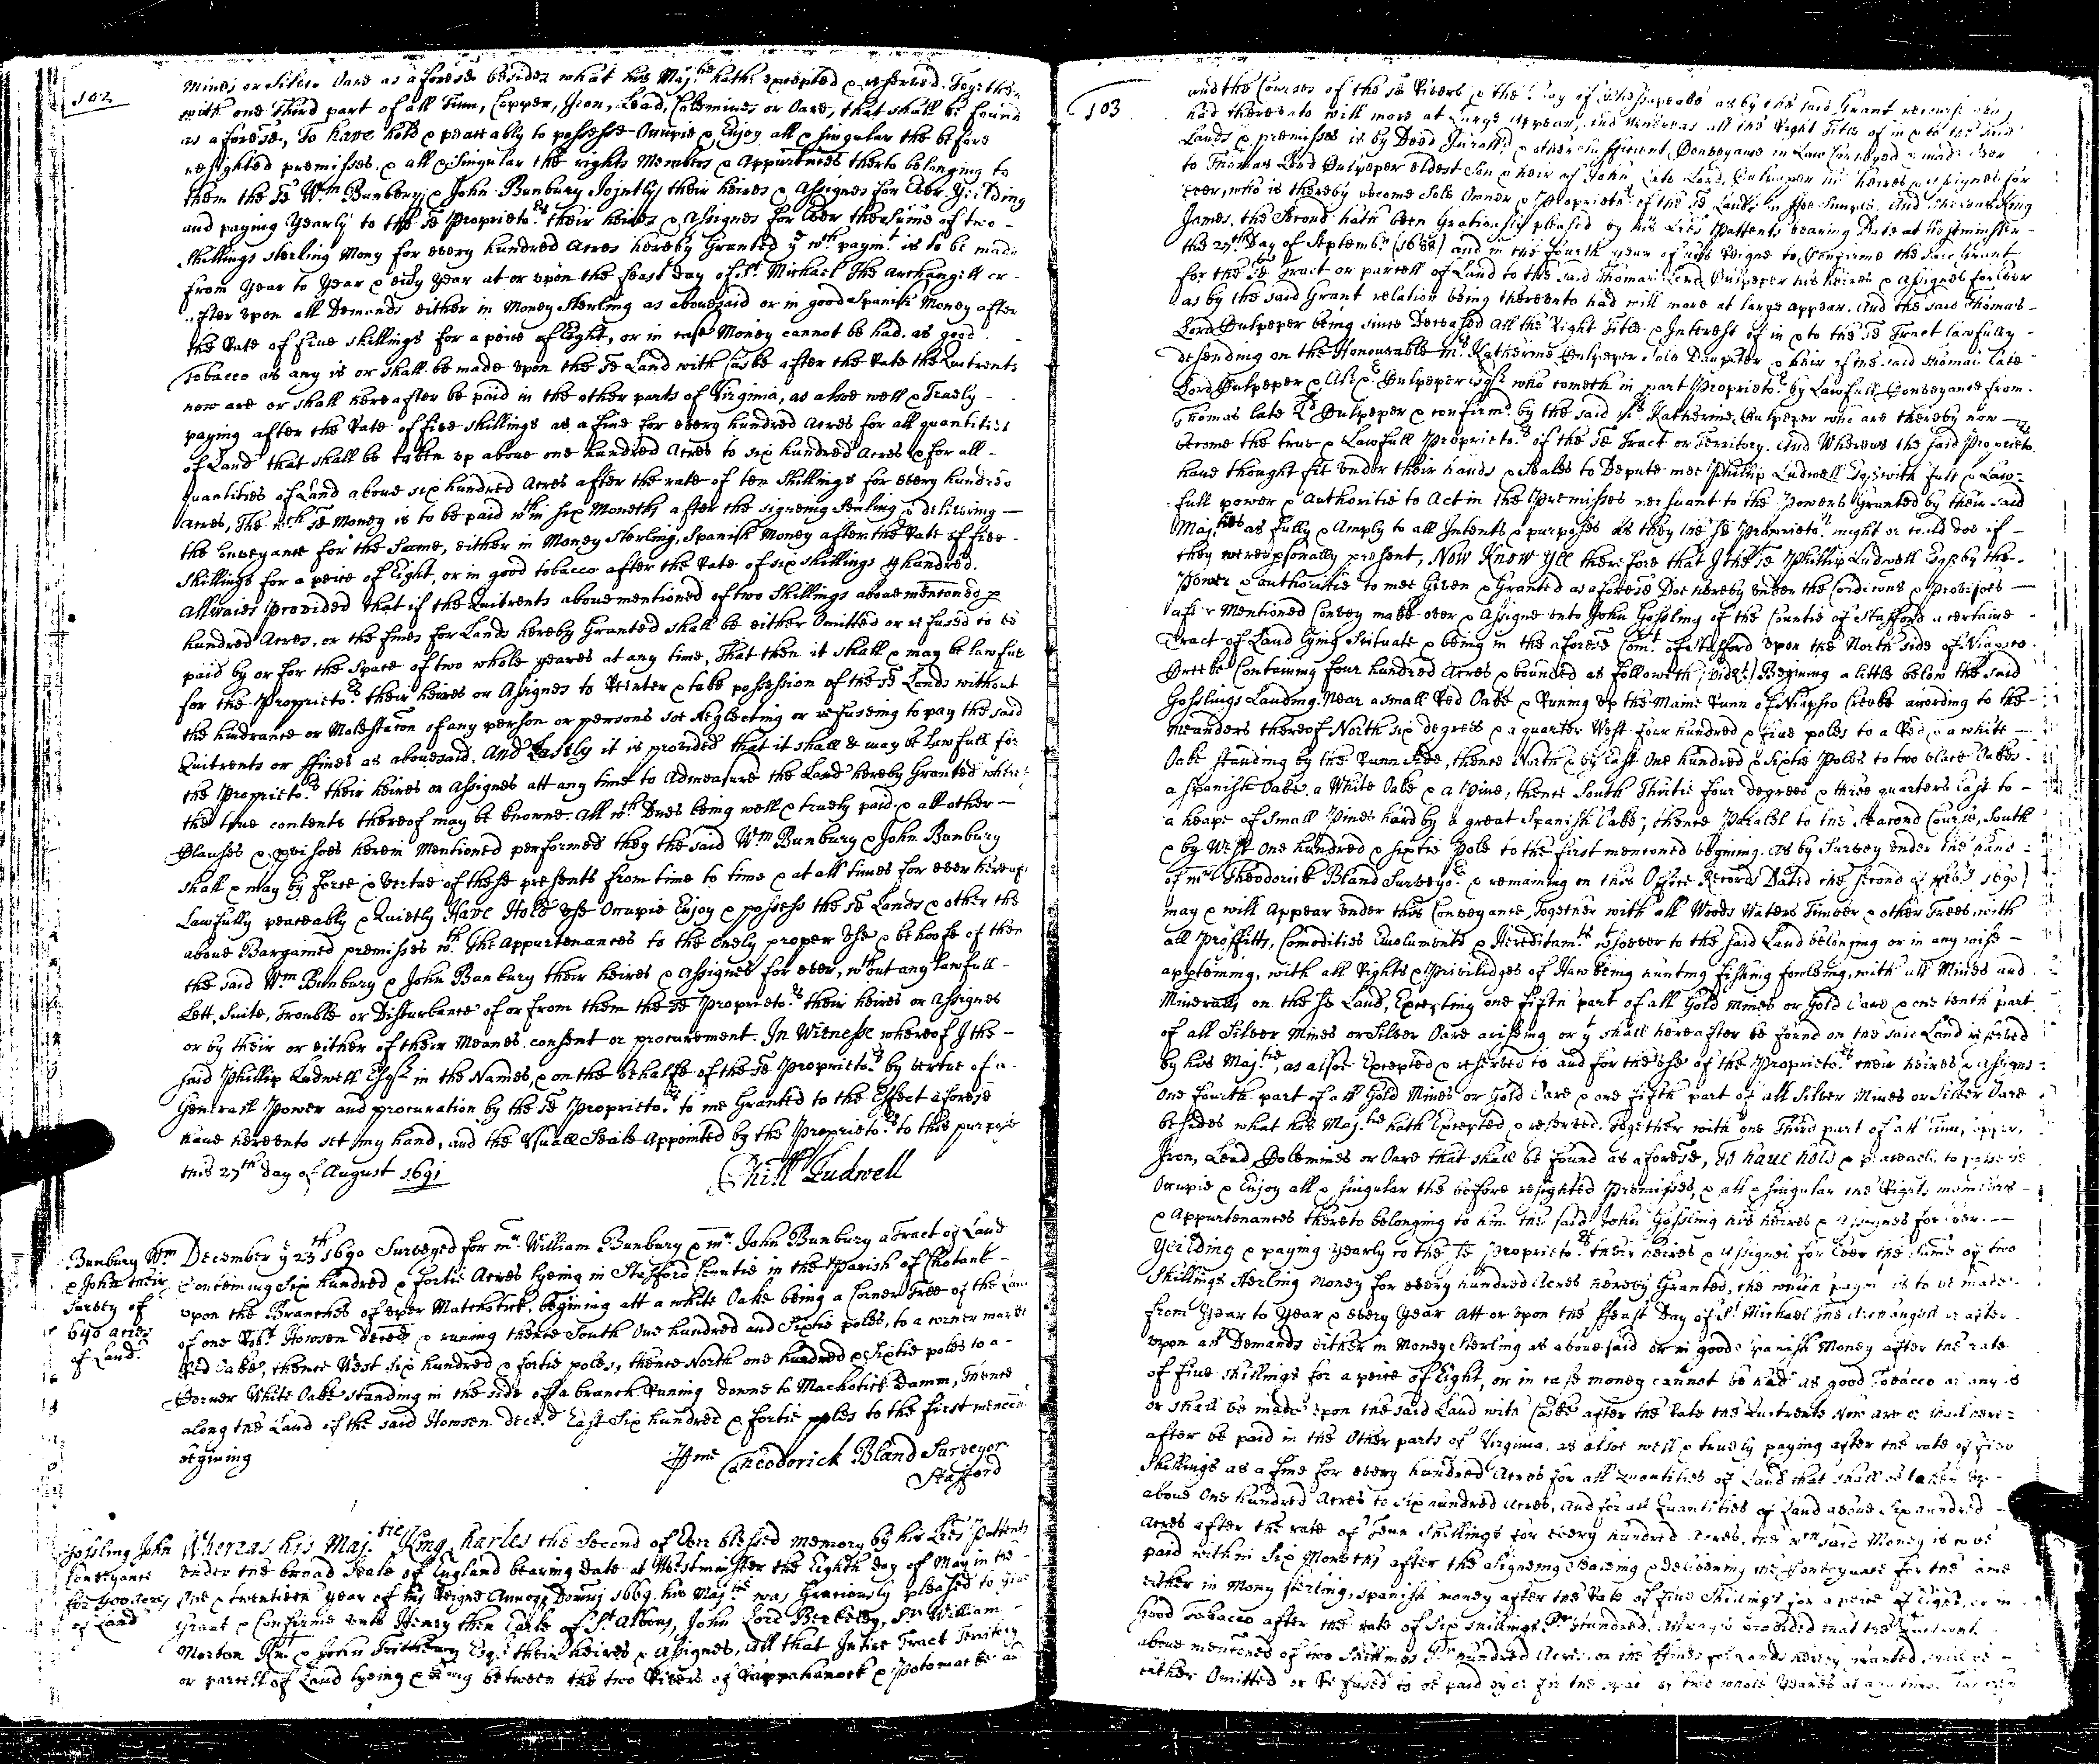 102
mines or Silver Oare as aforesd besides what his Maj.tie hath excepted & reserved. Together
with one Third part of all Tinn, Copper, Iron, Lead, Colemines or Oare, that shall be found
as aforesd, To have hold & peaceably to possesse Occupie & Enjoy all & singular the before
resighted premisses, & all & singular the rights Members & Appurtnces therto belonging to
them the sd Wm Bunbery & John Bunbury Jointly their heires & Assignes for Ever Yeilding
and paying Yearly to the sd Proprieto.rs their heires & Assignes for Ever the sume of two
Shillings sterling Mony for every hundred Acres hereby Granted ye wch paymt is to be made
from Year to Year & evry Year at or upon the feast day of St Michael The Archangell or
after upon all Demands either in Money Sterling as abovesaid or in good Spanish Money after
the Rate of five shillings for a peice of Eight, or in case Money cannot be had as good
Tobacco as any is or shall be made upon the sd Land with Caske after the Rate the Quitrents
now are or shall hereafter be paid in the other parts of Virginia, as alsoe well & Truely
paying after the Rate of five shillings as a fine for every hundred Acres for all quantities
of Land that shall be taken up above one hundred Acres to six hundred Acres & for all
quantities of Land above six hundred Acres after the rate of ten Shillings for every hundred
Acres, The wch sd Money is to be paid wthin six Moneths after the signeing Sealing & delivering
the Conveyance for the Same, either in Money Sterling, Spanish Money after the Rate of five
Shillings for a peice of Eight, or in good tobacco after the Rate of six shillings p hundred.
Allwaies Provided that if the Quitrents above mentioned of two Shillings above mentoned p
hundred Acres, or the fines for Lands hereby Granted shall be either Omitted or refused to be
paid by or for the Space of two whole yeares at any time, That then it shall & may be lawfull
for the Proprieto.rs their heires or Assignes to Reenter & take possession of the sd Lands without
the hindrance or Molestacon of any person or persons soe Neglecting or refuseing to pay the said
Quitrents or ffines as abovesaid. And Lastly it is provided that it shall & may be Lawfull for
the Proprieto.rs their heires or Assignes att any time to Admeasure the Land hereby Granted where
the true contents thereof may be knowne. All wch Dues being well & truely paid & all other
Clauses & provisoes herein Mentioned performed they the said Wm Bunbury & John Bunbury
shall & may by force & vertue of these presents from time to time & at all times for ever hereaf
Lawfully peaceably & Quietly Have Hold Use Occupie Enjoy & possess the sd Lands & other the
above Bargained premisses wth the Appurtenances to the Onely proper Use & behoofe of them
the said Wm Bunbury & John Bunbury their heires & Assignes for ever, wthout any lawfull
Lett, Suite, Trouble or Disturbance of or from them the sd Proprieto.rs their heires or Assignes
or by their or either of their Meanes consent or procurement. In Witnesse whereof I the
said Phillip Ludwell Esqr in the Names, & on the behalfe of the sd Proprieto.rs by vertue of a
Generall Power and procuration by the sd Proprieto.rs to me Granted to the Effect aforesd
have hereunto set my hand, and the Usuall Seale Appointed by the Proprieto.rs to this purpose
this 27th day of August 1691
Phill Ludwell
Bunbury Wm
& John their
Survey of
640 acres
of Land
December ye 23th 1690 Surveyed for mr. William Bunbury & mr. John Bunbury a Tract of Land
Conteining Six hundred & fortie Acres lyeing in Stafford Countie in the Parish of Chotank
upon the Branches of uper Matchotick, begining att a white Oake being a Corner Tree of the Land
of one Robt. Howsen deced & runing thence South One hundred and Sixtie poles, to a corner marke
Red Oake, thence West Six hundred & fortie poles, thence North one hundred & Sixtie poles to a
Corner White Oake standing in the side of a branch Runing downe to Machotick Damm, Thence
along the Land of the said Howsen deced East Six hundred & fortie poles to the first mencon
begining
P me Theodorick Bland Surveyor
Stafford
Gossling John
Conveyance
for 400 Acres
of Land
Whereas his Maj.tie King Charles the Second of Ever blessed memory by his Lres Pattents
under the broad Seale of England bearing date at Westminster the Eighth day of May in the
One & twentieth Year of his Reigne Annoq Domini 1669. his Maj.tie was Graciously pleased to Give
Grant & Confirme unto Henry then Earle of St. Albons, John Lord Berkeley, Sr. William
Morton Knt. & John Trethewy Esqr. their heires & Assignes, All that Intire Tract Territory
or parcell of Land lyeing & being between the two Rivers of Rappahanock & Potomack
103
and the Courses of the sd Rivers & the Bay of Chesapeake as by the said Grant recourse being
had thereunto will more at Large Appear, And whereas all the Right Title of in & to the said
Lands & premisses is by Deed Inroll'd & other sufficient Conveyance in Law Conveyed & made over
to Thomas Lord Culpeper eldest Son & heir of John Late Lord Culpeper his heires & Assignes for
ever, who is thereby become Sole Owner & Proprieto.r of the sd Lands in ffee Simple. And whereas King
James the Second hath been Gratiously pleased by his Lres Pattents bearing Date at Westminster
the 27th Day of Septembr (1688) and in the fourth year of his Reigne to Confirme the said Grant
for the sd Tract or parcell of Land to the said Thomas Lord Culpeper his heires & Assignes for Ever
as by the said Grant relation being thereunto had will more at large appear. And the said Thomas
Lord Culpeper being since Deceased All the Right Title & Interest of in & to the sd Tract lawfully
desending on the Honourable Mrs. Katherine Culpeper Sole Daughter & heir of the said Thomas late
Lord Culpeper & Alexr Culpeper Esqr who cometh in part Proprieto.r by Lawfull Conveyance from
Thomas late Ld Culpeper & confirmd by the said Mrs Katherine Culpeper who are thereby now
become the true & Lawfull Proprieto.rs of the sd Tract or Territory. And Whereas the said Proprieto.rs
have thought fit under their hands & Seales to Depute mee Phillip Ludwell Esqr with full & Law-
full power & Authoritie to Act in the Premisses persuant to the Powers Granted by their said
Maj.ties as fully & Amply to all Intents & purposes as they the sd Proprieto.rs might or could doe if
they were psonally present, Now Know Yee therefore that I the sd Phillip Ludwell Esqr by the
Power & authoritie to mee Given & Granted as aforesd Doe hereby under the Condicons & Provisoes
after Mentioned Convey make over & Assigne unto John Gossling of the Countie of Stafford a certaine
Tract of Land lying Scituate & being in the aforesd Comt. of Stafford upon the North side of Niapsco
Creeke Containing four hundred Acres & bounded as followeth (vidzt.) Begining a little below the said
Gosslings Landing Near a small Red Oake & Runing up the Maine Runn of Niapsco Creeke according to the
meanders thereof North six degrees & a quarter West four hundred & five poles to a Red & a white
Oake standing by the Runn side, thence North & by East One hundred & Sixtie Poles to two black Oakes
a Spanish Oake, a White Oake & a Pine, thence South Thirtie four degrees & three quarters East to
a heape of Small Pines hard by a great Spanish Oake, thence Paralel to the Second Course, South
& by West One hundred & sixtie Pole to the first mentoned begining. As by Survey under the hand
of mr. Theodorick Bland Surveyor. & remaining in this Office Records Dated the second of 1690
may & will Appear under this Conveyance, Together with all Woods Waters Timber & other Trees, with
all Proffitts, Comodities Emoluments & Hereditamts wtsoever to the said Land belonging or in any wise
apptaining, with all Rights & Priviledges of Hawking hunting fishing fowling, with all Mines and
Mineralls on the sd Land, Excepting one fifth part of all Gold Mines or Gold Oare & one tenth part
of all Silver Mines or Silver Oare arissing or yt shall hereafter be found on the said Land reserved
by his Maj.tie, as alsoe Excepted & reserved to and for the use of the Proprieto.rs their heires & Assigns
One fourth part of all Gold Mines or Gold Oare & one fifth part of all Silver Mines or Silver Oare
besides what his Maj.tie hath Excepted & reserved. Together with one Third part of all Tinn, Copper,
Iron, Lead, Colemines or Oare that shall be found as aforesd, To have hold & peaceably to possesse
Occupie & Enjoy all & singular the before resighted Premisses, & all & singular the Rights members
& Appurtenances thereto belonging to him the said John Gossling his heires & Assignes for Ever.
Yeilding & paying Yearly to the sd Proprieto.rs their heires & Assignes for Ever the Sume of two
Shillings Sterling Money for every hundred Acres hereby Granted, the which paymt is to be made
from Year to Year & every Year att or upon the ffeast Day of St. Michael the Archangell or after
upon all Demands either in Money Sterling as above said or in good Spanish Money after the rate
of five shillings for a peice of Eight, or in case money cannot be had as good Tobacco as any is
or shall be made upon the said Land with Caske after the Rate the Quitrents Now are or shall here-
after be paid in the Other parts of Virginia, as alsoe well & truely paying after the rate of five
Shillings as a fine for every hundred Acres for all Quantities of Land that shall be taken up
above One hundred Acres to Six hundred Acres, And for all Quantities of Land above Six hundred
Acres after the rate of Tenn Shillings for every hundred Acres, the wch said Money is to be
paid within Six Moneths after the Signeing Sealeing & delivering the Conveyance for the same
either in Mony sterling, Spanish money after the Rate of five Shillings for a peice of Eight, or in
Good Tobacco after the rate of Six shillings Pr hundred. Allways provided that the Quitrents
above mentoned of two Shillings Pr hundred Acres or the ffines for Lands hereby Granted shall be
either Omitted or Refused to be paid by or for the space of two whole Yeares at any time, That then